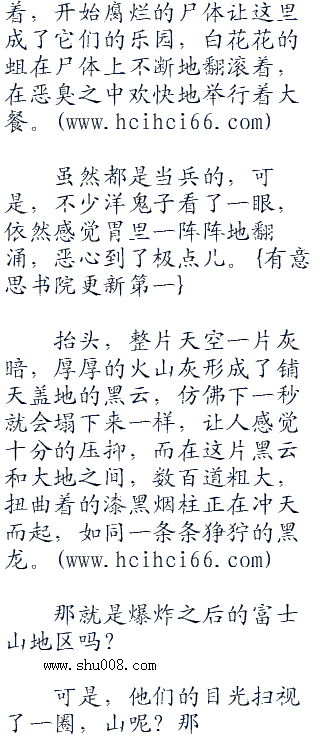 着，开始腐烂的尸体让这里
成了它们的乐园，白花花的
蛆在尸体上不断地翻滚着，
在恶臭之中欢快地举行着大
餐。(www.hcihci66.com)
虽然都是当兵的，可
是，不少洋鬼子看了一眼，
依然感觉胃里一阵阵地翻
涌，恶心到了极点儿。{有意
思书院更新第一}
抬头，整片天空一片灰
暗，厚厚的火山灰形成了铺
天盖地的黑云，仿佛下一秒
就会塌下来一样，让人感觉
十分的压抑，而在这片黑云
和大地之间，数百道粗大，
扭曲着的漆黑烟柱正在冲天
而起，如同一条条狰狞的黑
龙。(www.hcihci66.com)
那就是爆炸之后的富士
山地区吗？
www.shu008.com
可是，他们的目光扫视
了一圈，山呢？那